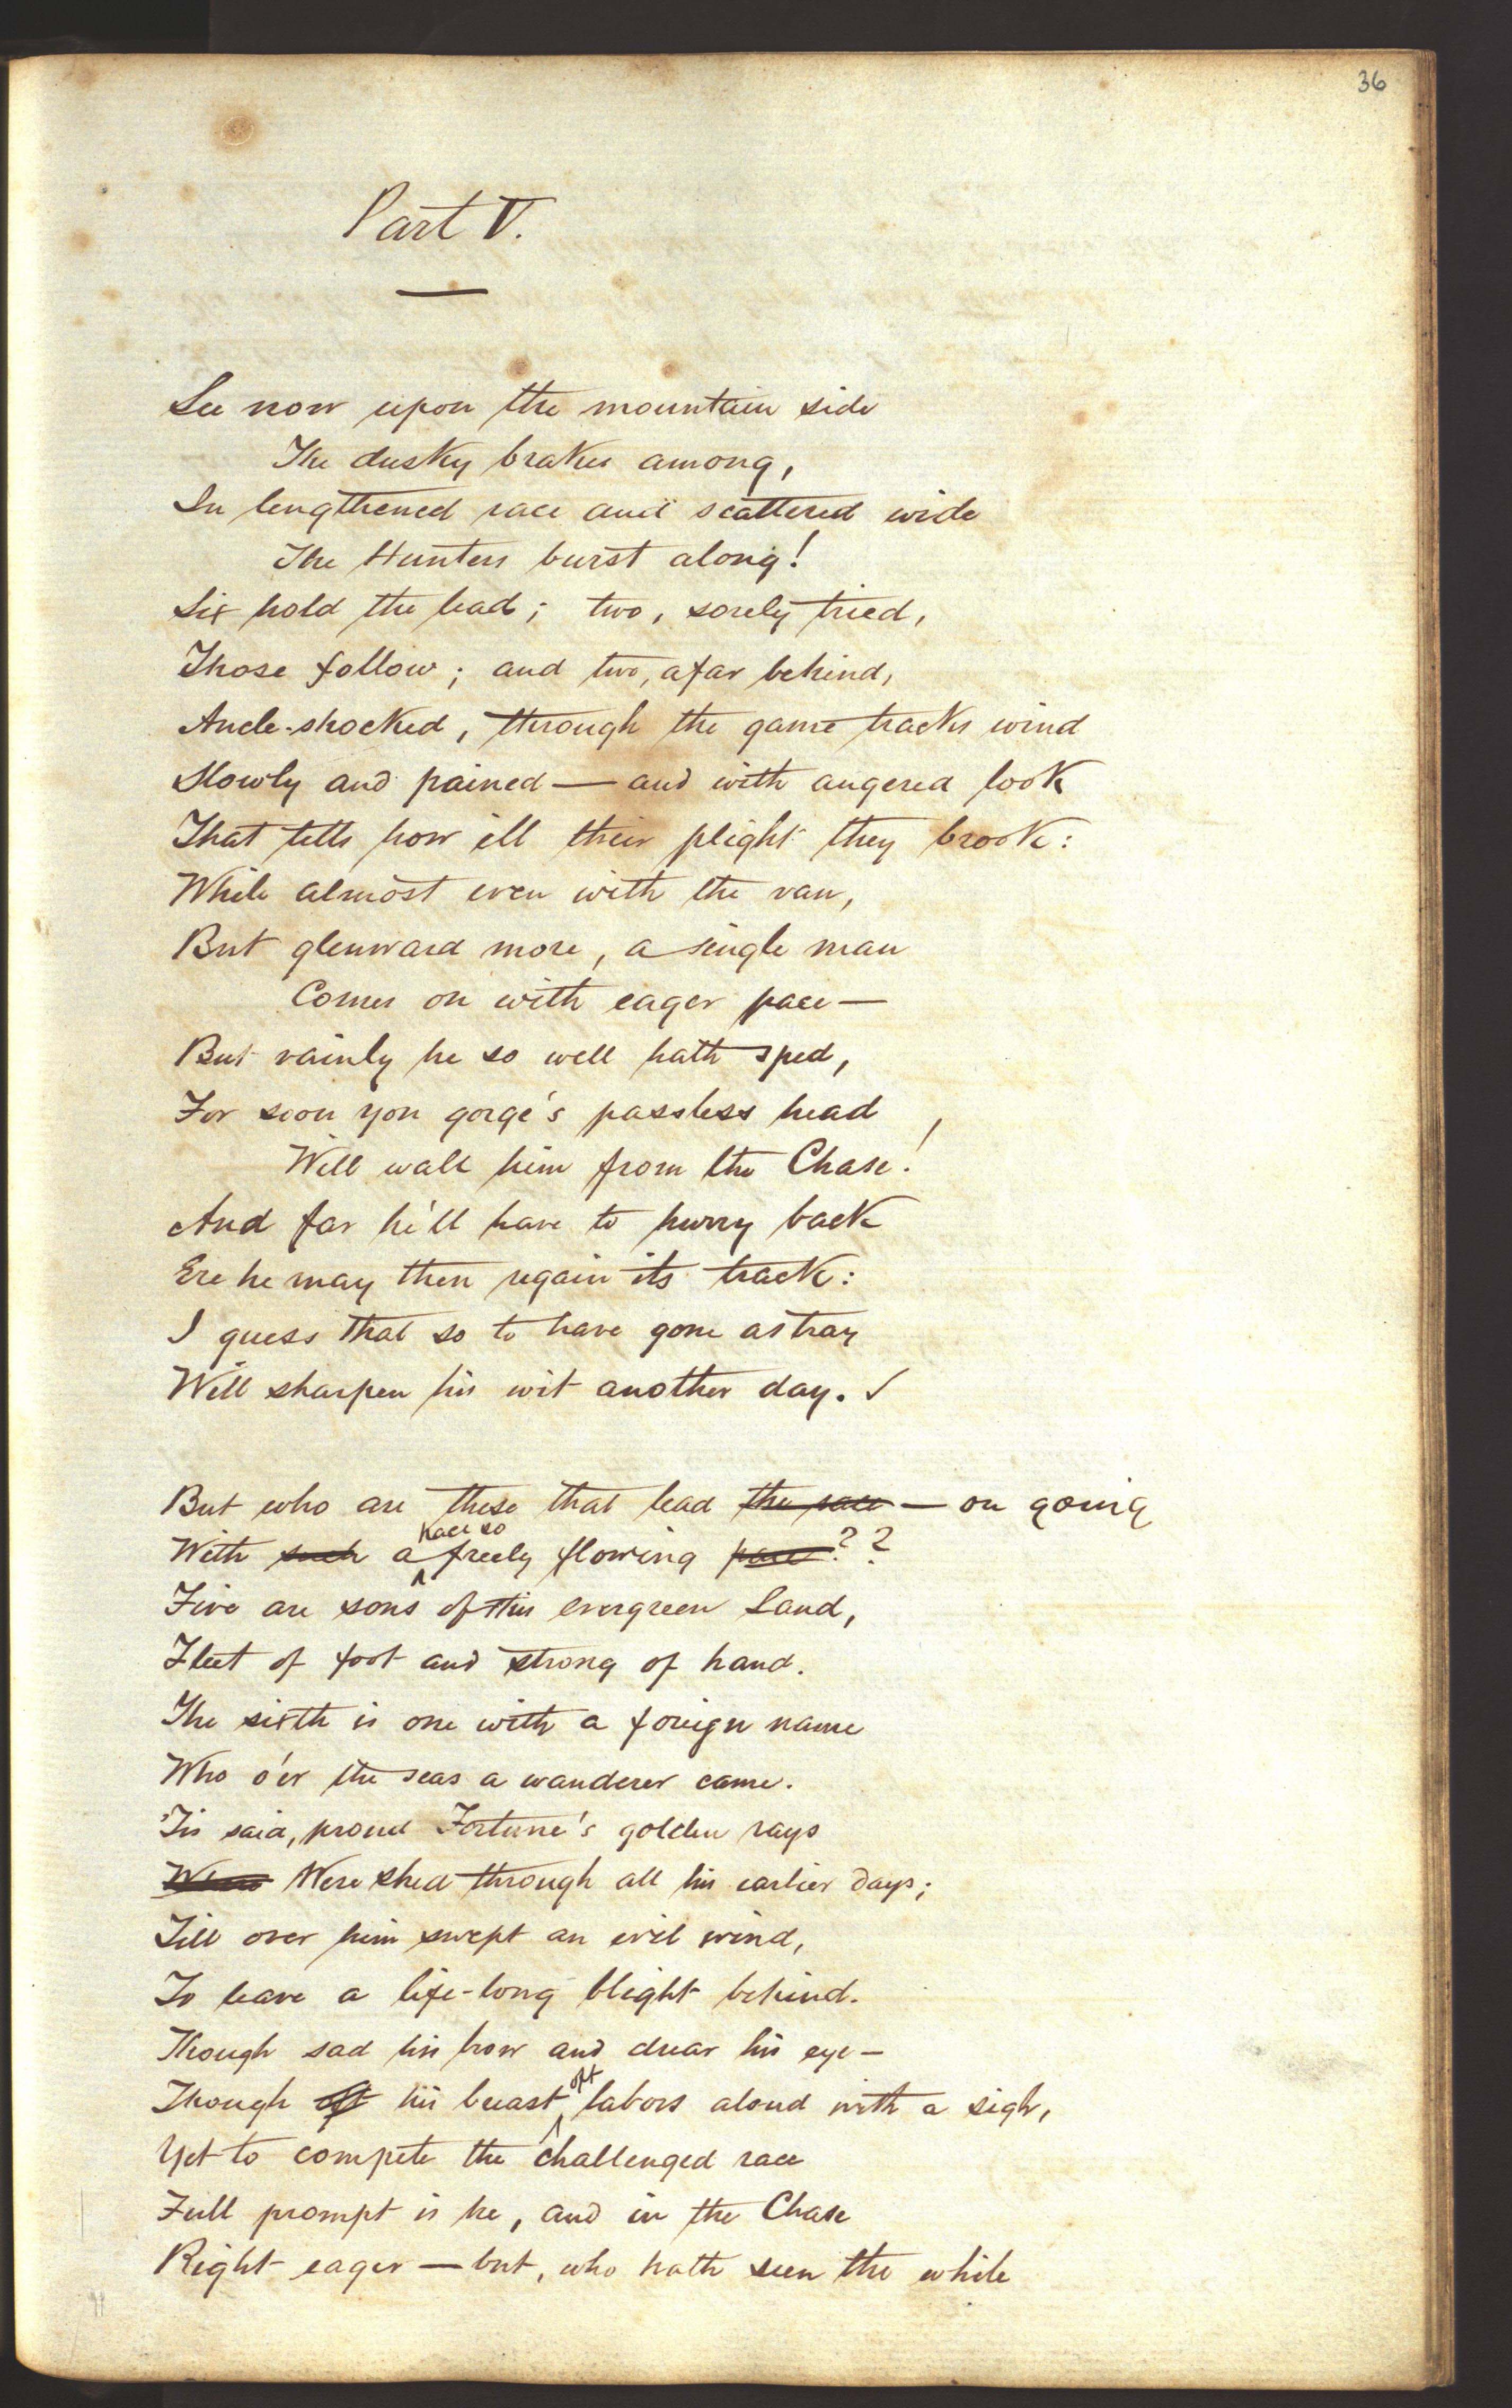 36
Part V.
See now upon the mountain side
The dusky brakes among,
In lengthened race and scattered wide
The Hunters burst along!
Six hold the lead; two, sorely tried,
Those follow; and two, afar behind,
Ancle-shocked, through the game tracks wind
Slowly and pained — and with angered look
That tells how ill their plight they brook:
While almost even with the van,
But glenward more, a single man
Comes on with eager pace —
But vainly he so well hath sped,
For soon yon gorge's passless head
Will wall him from the Chase!
And far he'll have to hurry back
Ere he may then regain its track:
I guess that so to have gone astray
Will sharpen his wit another day.
But who are these that lead the race — on going
race so
With such a freely flowing pace??
Five are sons of this evergreen Land,
Fleet of foot and strong of hand.
The sixth is one with a foreign name
Who o'er the seas a wanderer came.
'Tis said, proud Fortune's golden rays
Were shed through all his earlier days;
Till over him swept an evil wind,
To leave a life-long blight behind.
Though sad his brow and drear his eye —
oft
Though oft his breast labors aloud with a sigh,
Yet to compete the challenged race
Full prompt is he, and in the Chase
Right eager — but, who hath seen the while